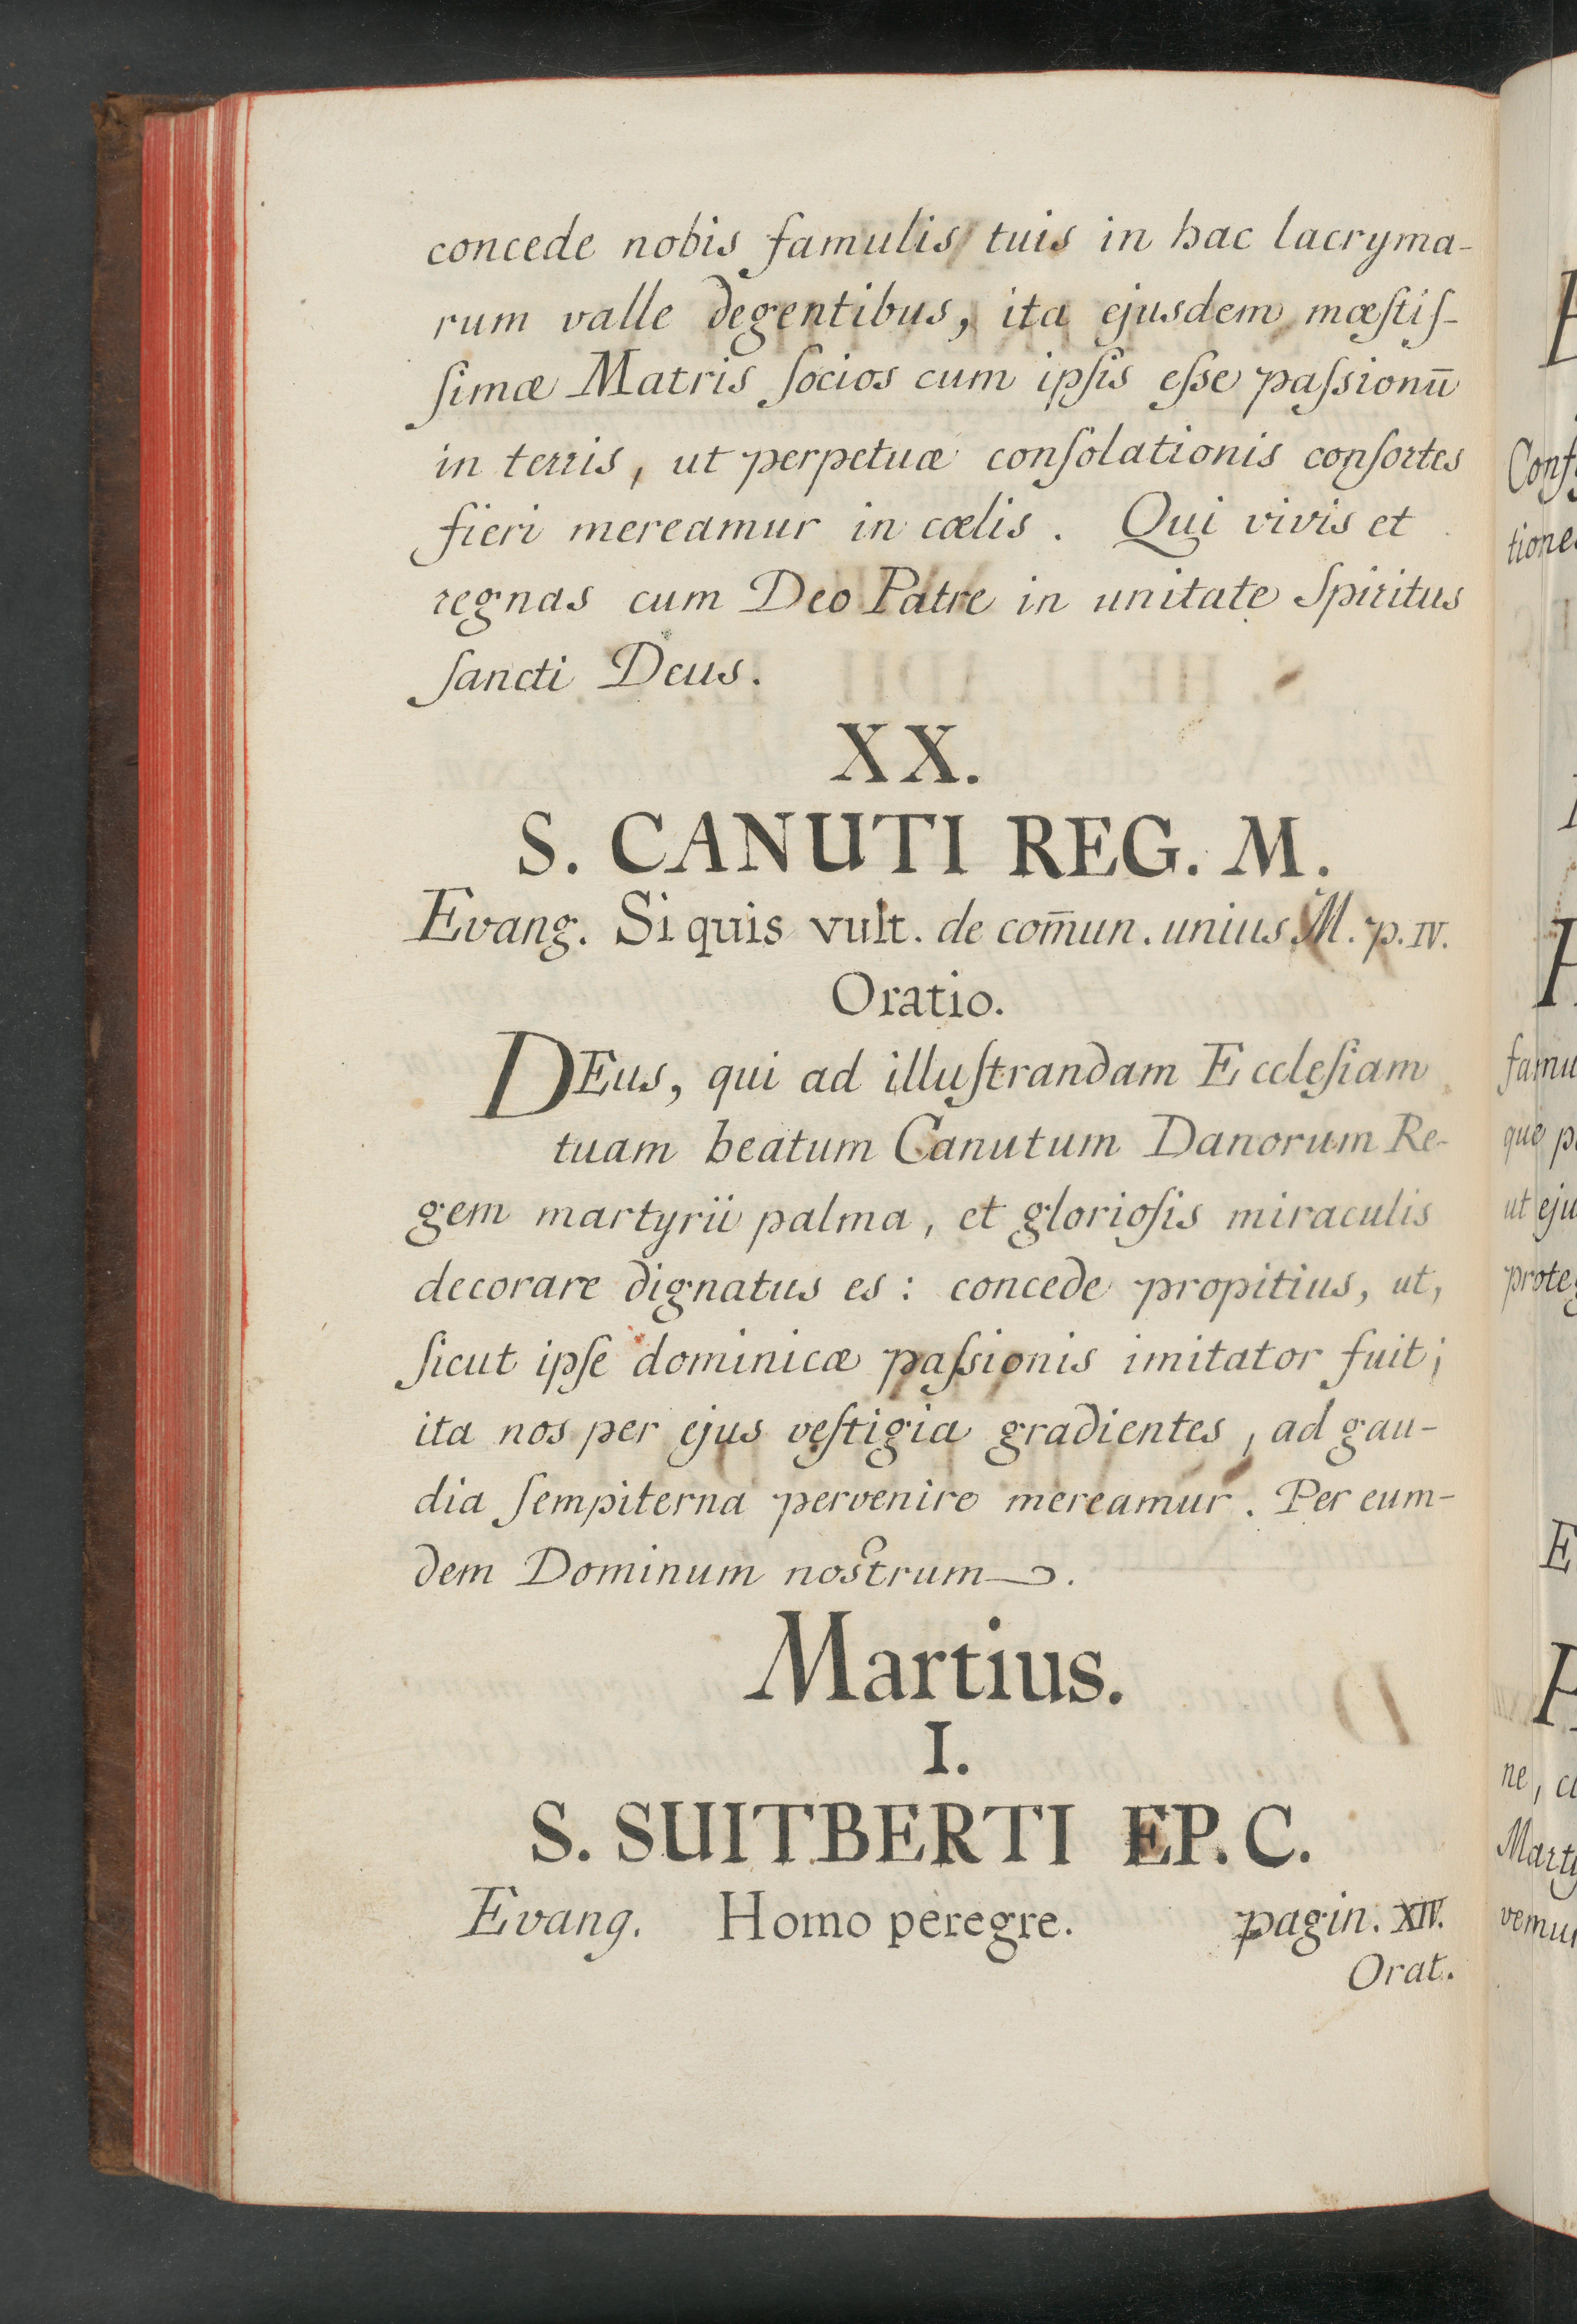 concede nobis famulis tuis in hac lacryma-
rum valle degentibus, ita ejusdem mœſtiſ-
ſimæ Matris ſocios cum ipſis eſse paſsionū
in terris, ut perpetuæ conſolationis conſortes
fieri mereamur in cœlis. Qui vivis et
regnas cum Deo Patre in unitate Spiritus
ſancti Deus.
XX.
S. CANUTI REG. M.
Evang. Si quis vult. de com̄un. unius M. p. IV.
Oratio.
DEus, qui ad illuſtrandam Eccleſiam
tuam beatum Canutum Danorum Re-
gem martyrii palma, et glorioſis miraculis
decorare dignatus es: concede propitius, ut,
ſicut ipſe dominicæ paſsionis imitator fuit;
ita nos per ejus veſtigia gradientes, ad gau-
dia ſempiterna pervenire mereamur. Per eum-
dem Dominum nostrum.
Martius.
I.
S. SUITBERTI EP. C.
Evang. Homo peregre. pagin. XIV.
Orat.